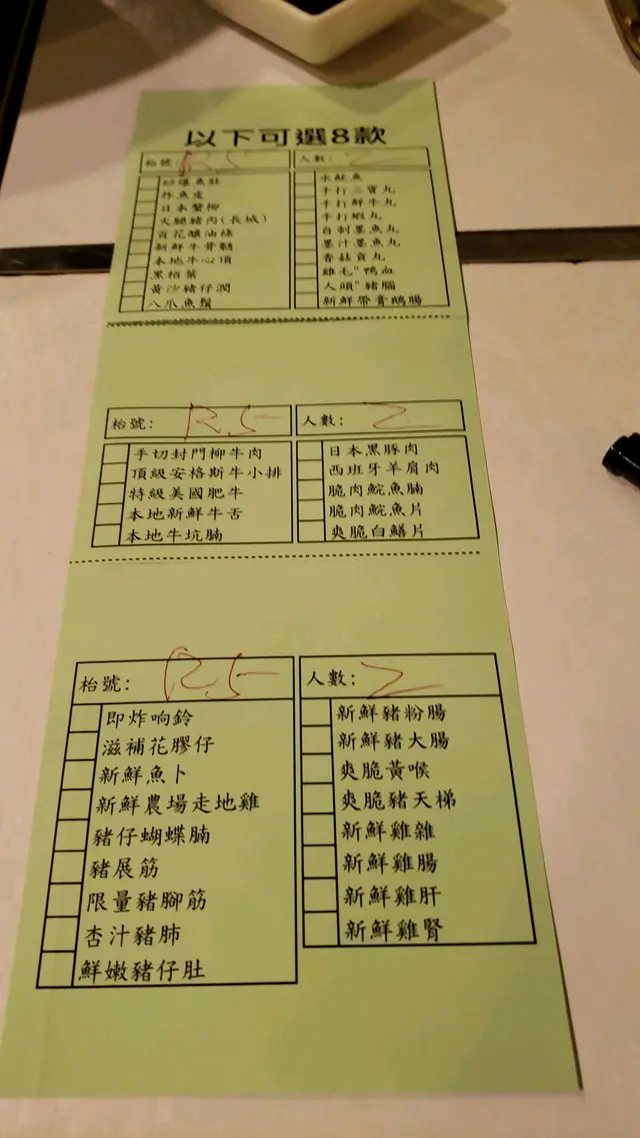 以下可選8款
枱號: R.5
人數: 2
炸魚皮
日本蟹柳
火腿豬肉(長城)
百花釀油條
新鮮牛骨髓
本地牛心頂
黑栢葉
黃沙豬仔潤
八爪魚鬚
水魷魚
手打三寶丸
手打鮮牛丸
手打蝦丸
自制墨魚丸
墨汁墨魚丸
香菇貢丸
雞毛"鴨血
人頭"豬腦
新鮮帶膏鵝腸
枱號: R.5
人數: 2
手切封門柳牛肉
頂級安格斯牛小排
特級美國肥牛
本地新鮮牛舌
本地牛坑腩
日本黑豚肉
西班牙羊肩肉
脆肉鯇魚腩
脆肉鯇魚片
爽脆白鱔片
枱號: R.5
人數: 2
即炸响鈴
滋補花膠仔
新鮮魚卜
新鮮農場走地雞
豬仔蝴蝶腩
豬展筋
限量豬腳筋
杏汁豬肺
鮮嫩豬仔肚
新鮮豬粉腸
新鮮豬大腸
爽脆黃喉
爽脆豬天梯
新鮮雞雜
新鮮雞腸
新鮮雞肝
新鮮雞腎